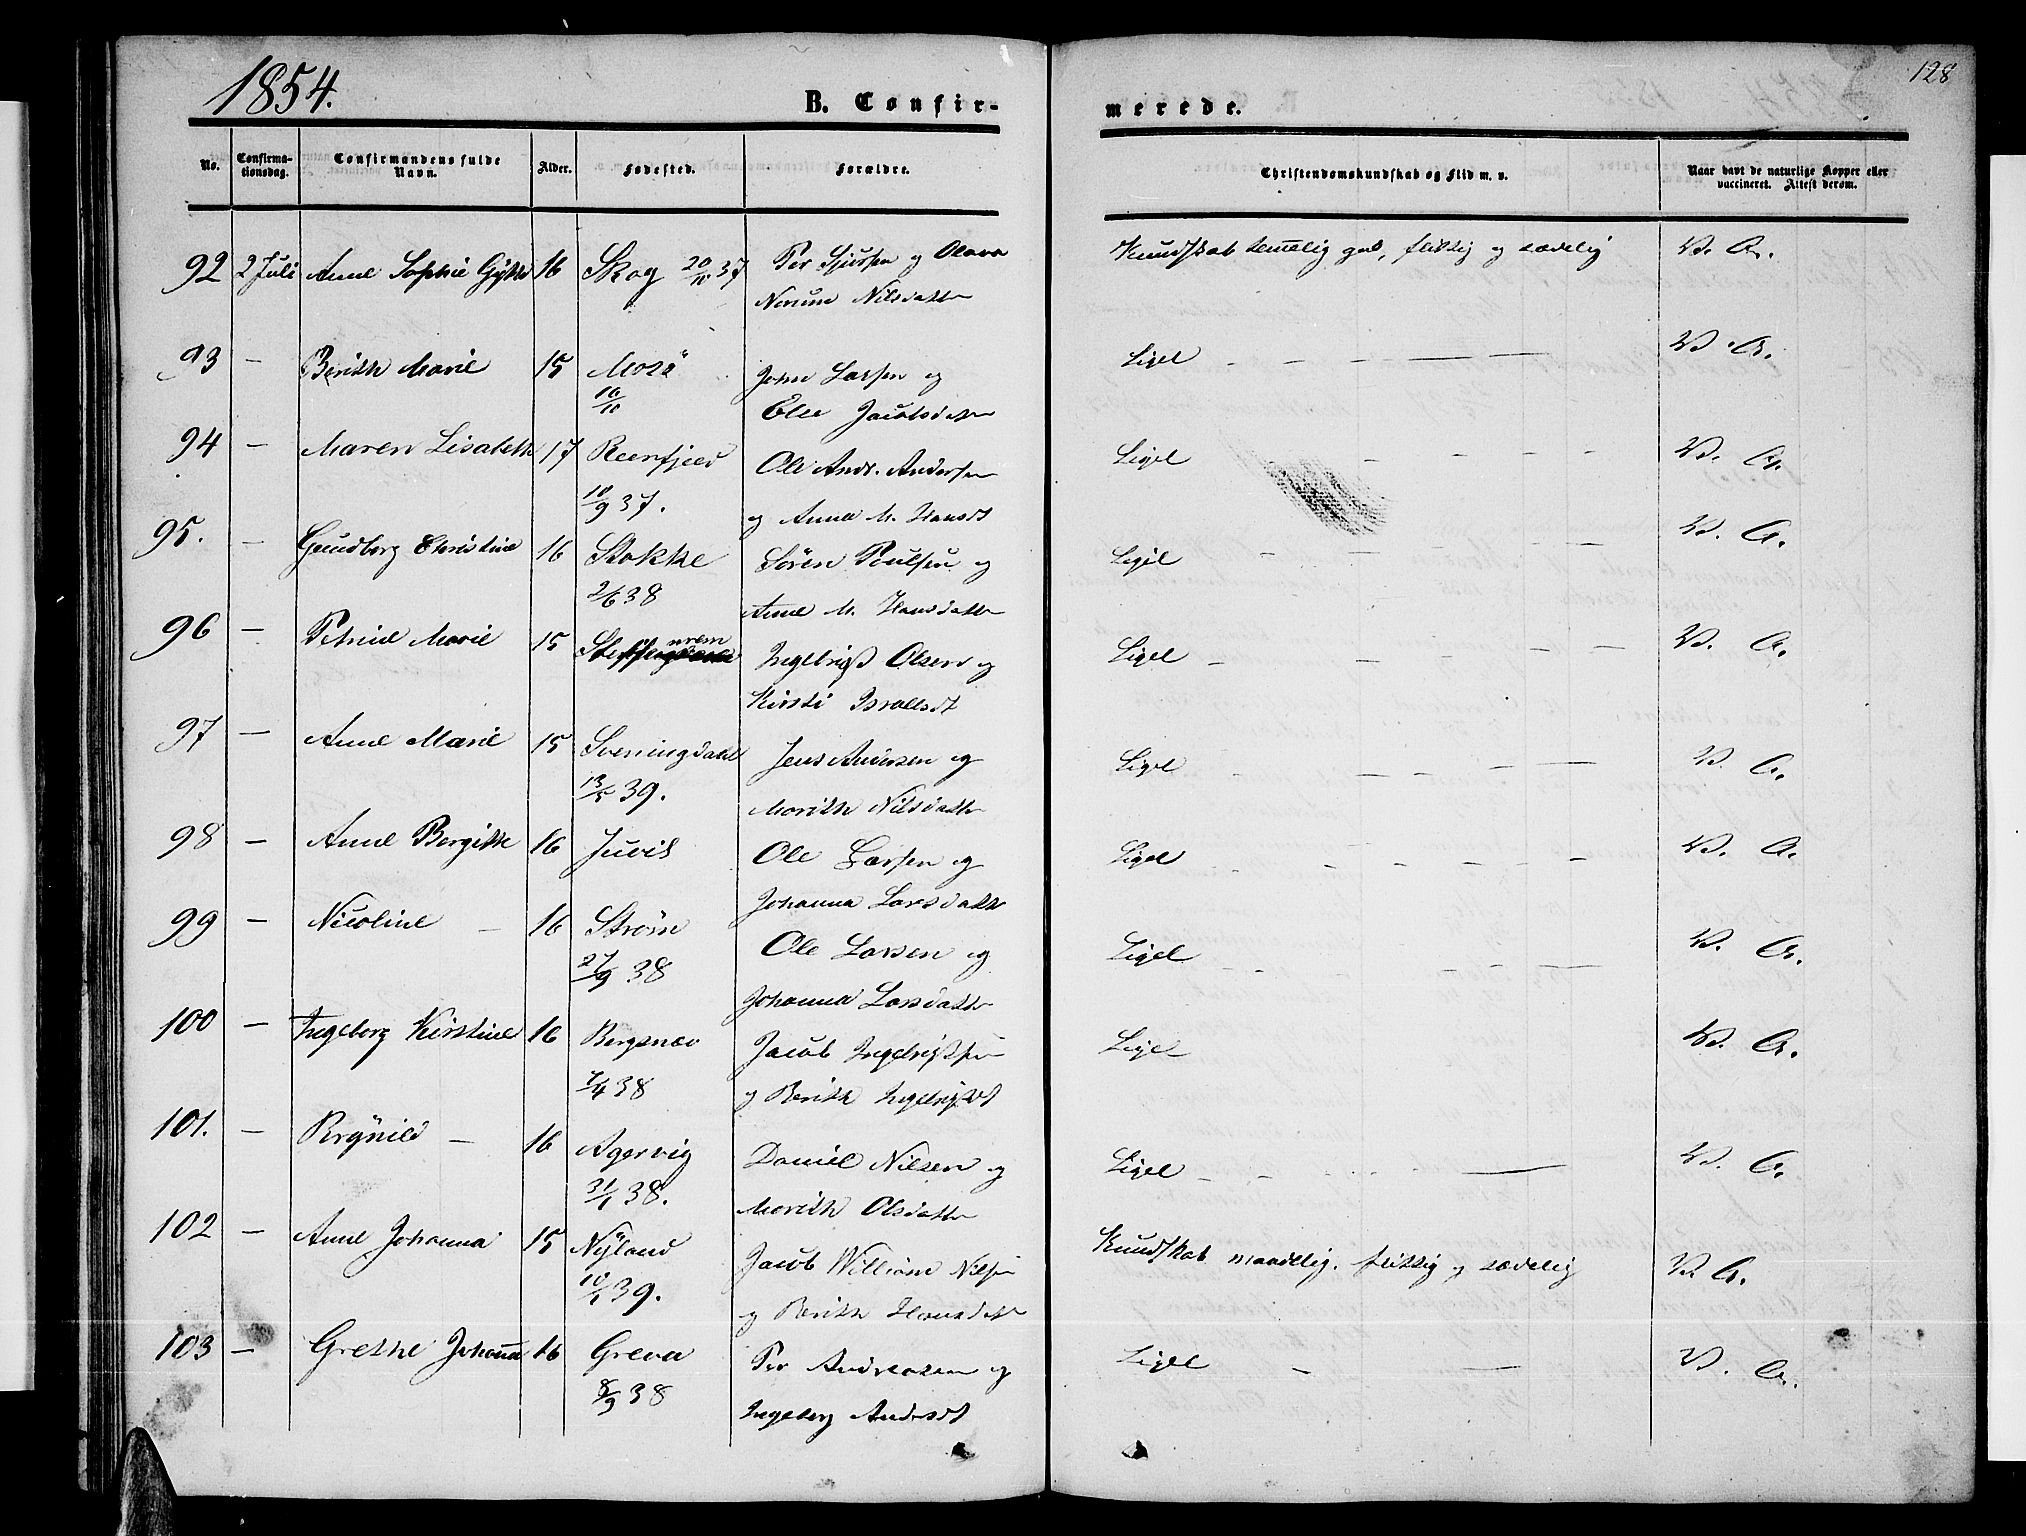 1854.
B. Confir-
merede.
128
No.
Confirma-
tionsdag.
Confirmandens fulde
Navn.
Alder.
Fødested.
Forældre.
Christendomskundskab og Flid m. v.
Naar havt de naturlige Kopper eller
vaccineret. Attest derom.
92 2 Juli Anne Sophie 16 Skog 20/10 37 Per Sjursen og Olava
Kundskab temelig god, flittig og sædelig V. A.
Nilsdatter
93 — Berith Marie 15 Mosö John Larsen og
16/10 Elee Jacobsdatter
Ligel — — — V. A.
94 — Maren Lisabeth 17 Reenfjeld Ole Andr. Andersen
10/9 37. og Anna M. Hansdt
Ligel — — — V. A.
95. — Gundborg Christine 16 Stokke Søren Poulsen og
2/6 38 Anne M. Hansdatter
Ligel — — — V. A.
96 — Petrine Marie 15 Ingebrigt Olsen og
Kirsti Israelsdt
Ligel — — — V. A.
97 — Anne Marie 15 Sveningdahl Jens Andersen og
13/5 39. Marith Nilsdatter
Ligel — — — V. A.
98 — Anne Bergitte 16 Juvik Ole Larsen og
Johanna Larsdatter
Ligel — — — V. A.
99 — Nicoline — 16 Strøm Ole Larsen og
27/9 38 Johanna Larsdatter
Ligel — — — V. A.
100 — Ingeborg Kirstine 16 Bergsnev Jacob Ingebrigtsen
7/4 38 og Berith Ingebrigtsdt
Ligel V. A.
101. — Brynild — 16 Agervig Daniel Nilsen og
31/1 38. Marith Olsdatter
Ligel — — — V. A.
102 — Anne Johanna 15 Nyland Jacob William Nilsen
10/1 39. og Berith Hansdatter
Kundskab maadelig. flittig og sædelig V. A.
103 — Grethe Johanna 16 Greva Per Andreasen og
8/9 38 Ingeborg Andersdt
Ligel — — V. A.